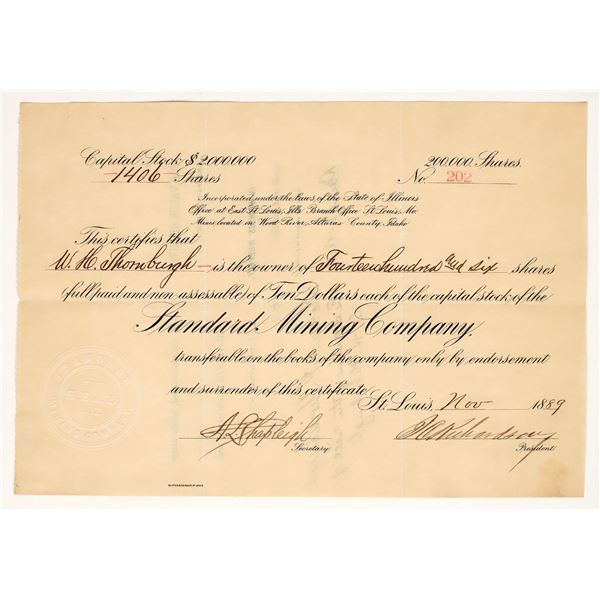 Capital Stock $2,000,000
200,000 Shares.
-1406- Shares
No. 202
Incorporated under the Laws of the State of Illinois
Office at East St. Louis, Ills. Branch Office St. Louis, Mo.
Mines, located on Wood River, Alturas County, Idaho
This certifies that
W. H. Thornburgh - is the owner of Fourteen hundred and six shares
(full paid and non assessable) of Ten Dollars each of the capital stock of the
Standard Mining Company,
transferable on the books of the company only by endorsement
and surrender of this certificate
St. Louis, Nov 1889
A L Shapleigh
Secretary.
Richardson
President.